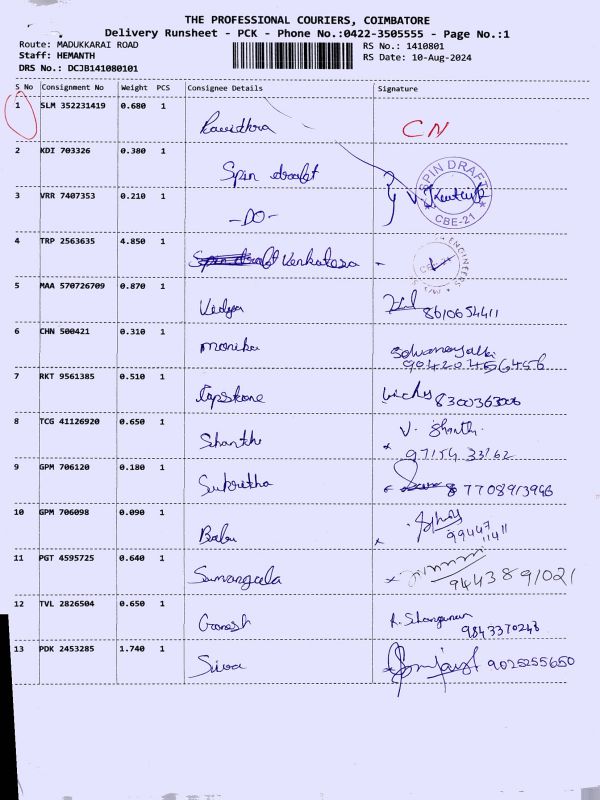 THE PROFESSIONAL COURIERS, COIMBATORE
Delivery Runsheet - PCK - Phone No.:0422-3505555 - Page No.:1
Route: MADUKKARAI ROAD
RS No.: 1410801
Staff: HEMANTH
RS Date: 10-Aug-2024
DRS No.: DCJB141080101
S No Consignment No Weight PCS Consignee Details Signature
1 SLM 352231419 0.680 1
CN
2 KDI 703326 0.380 1
Spin draft
SPIN DRAFT
CBE-21
3 VRR 7407353 0.210 1
-DO-
4 TRP 2563635 4.850 1
Venkatesa
ENGINEERS
5 MAA 570726709 0.870 1
Vidya
8610654411
6 CHN 500421 0.310 1
Monika
90420456456
7 RKT 9561385 0.510 1
Capstone
8300363006
8 TCG 41126920 0.650 1
Shanthi
V. Shanthi
97154 33162
9 GPM 706120 0.180 1
Sukritha
7708913946
10 GPM 706098 0.090 1
Babu
99447
11411
11 PGT 4595725 0.640 1
Sumangala
9443891021
12 TVL 2826504 0.650 1
Ganesh
9843370243
13 PDK 2453285 1.740 1
Siva
9025255650